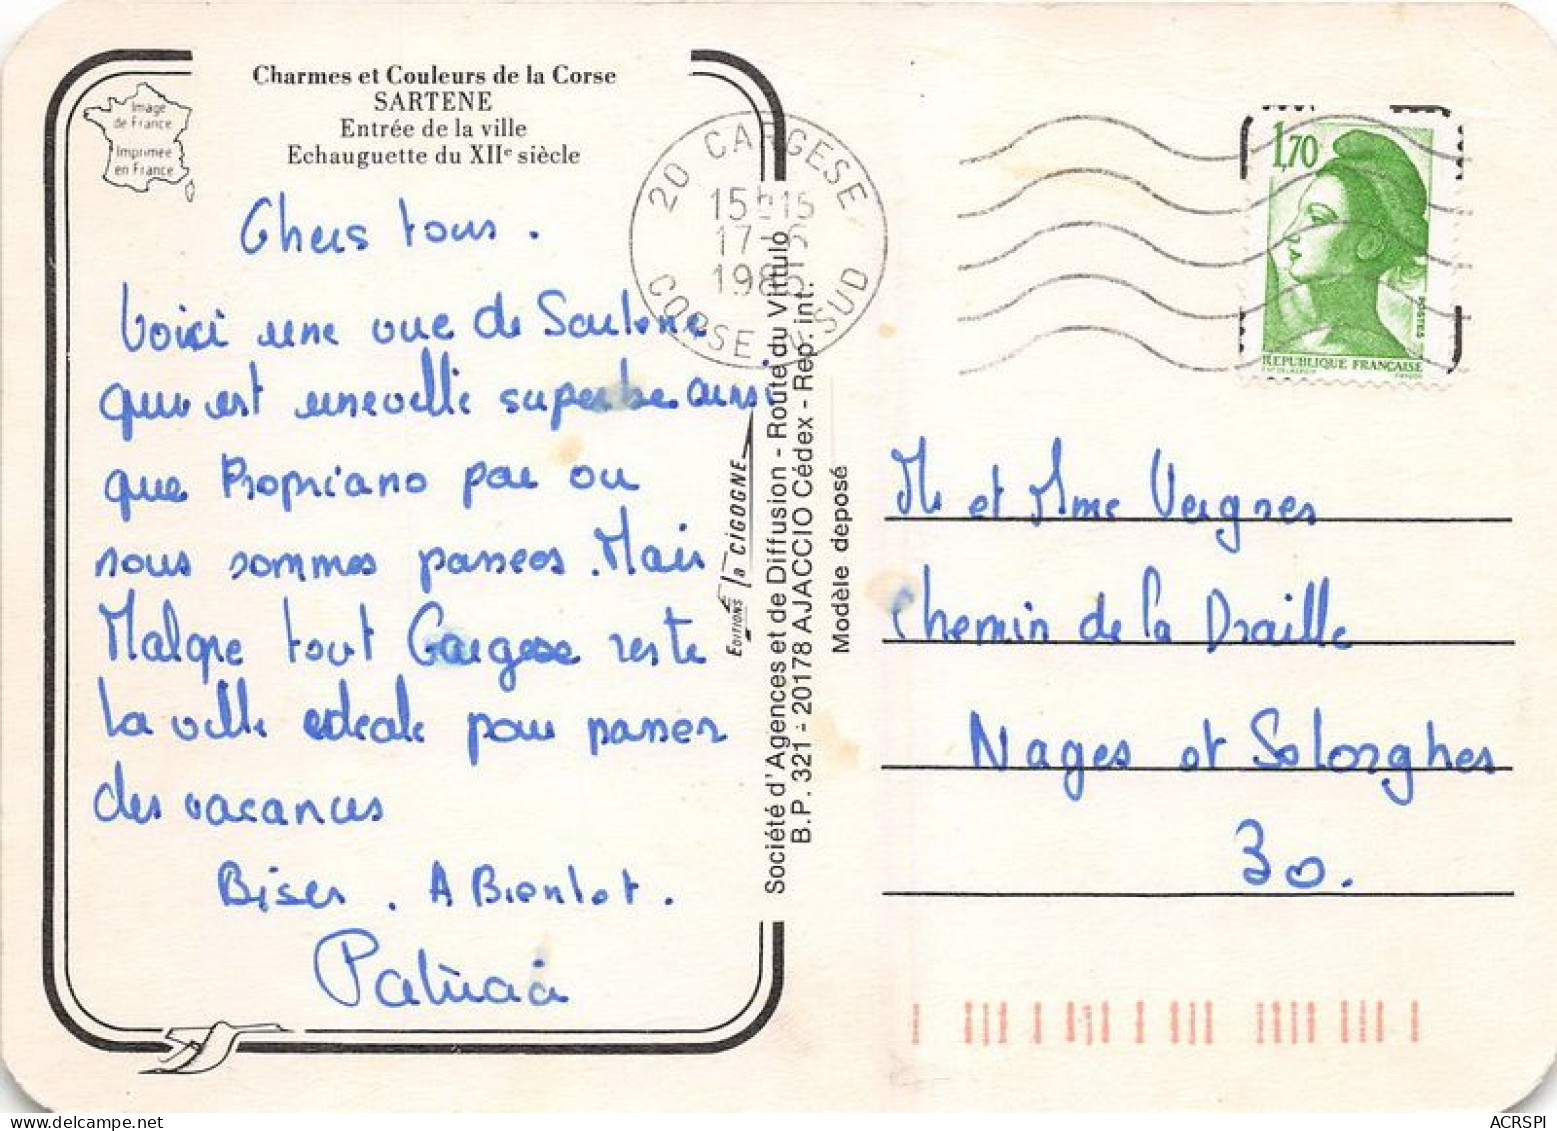 Charmes et Couleurs de la Corse
SARTENE
Entrée de la ville
Echauguette du XIIe siècle
Image
de France
Imprimée
en France
Chers tous.
Voici une vue de Sartene
qui est une ville superbe ainsi
que Propriano par ou
nous sommes passees. Mais
Malgre tout Cargese reste
la ville ideale pour passer
des vacances
Bises. A Bientot.
Patricia
20 CARGESE
15H15
17-6
198
CORSE DU SUD
EDITIONS la CIGOGNE
Société d'Agences et de Diffusion - Route du Vittulo
B.P. 321 - 20178 AJACCIO Cédex - Rep. int.
Modèle déposé
1,70
POSTES
REPUBLIQUE FRANÇAISE
Mr et Mme Vergnes
Chemin de la Draille
Nages et Solorghes
30.
ACRSPI